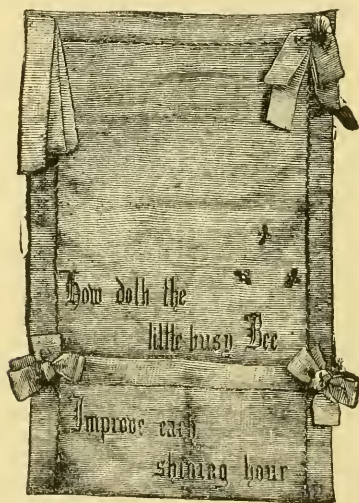 How doth the
little busy Bee
Improve each
shining hour